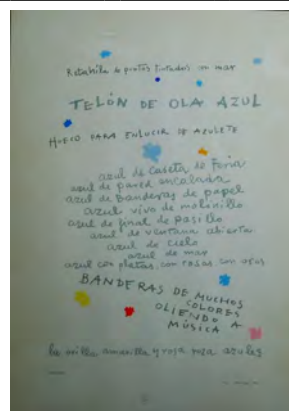 Retahíla de puntos pintados con mar
TELÓN DE OLA AZUL
HUECO PARA ENLUCIR DE AZULETE
azul de caseta de Feria
azul de pared encalada
azul de Banderas de papel
azul vivo de molinillo
azul de final de pasillo
azul de ventana abierta
azul de cielo
azul de mar
azul con platas, con rosas con ocres
BANDERAS DE MUCHOS
COLORES
OLIENDO A
MÚSICA
la orilla amarilla y rosa para azules